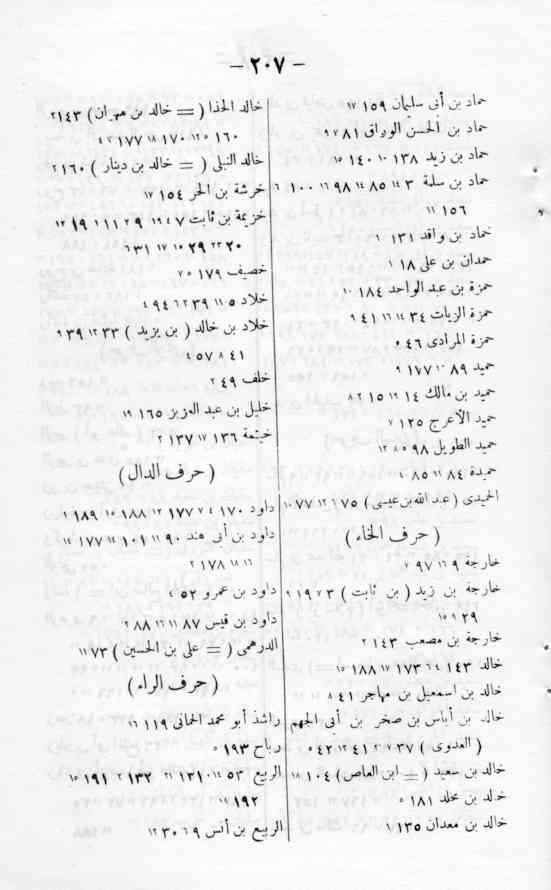 — ٢٠٧ —
حماد بن أبى سليمان ١٥٩ ١٧
حماد بن الحسن الوراق ٨١ ٩ ٧
حماد بن زيد ١٣٨ ١٠ ١٤٠ ١٥
حماد بن سلمة ٣ ١٤ ٨٥ ١٤ ٩٨ ١٦ ١٠٠ ٦
١٥٦ ١١
حماد بن واقد ١٣١ ١٠
حمدان بن على ١٨ ١
حمزة بن عبد الواحد ١٨٤ ١٠
حمزة الزيات ٣٤ ١٤ ١٦ ٤١ ٩
حمزة المرادى ٤٦ ٥
حميد ٨٩ ١٠ ١٧٧ ٩
حميد بن مالك ١٤ ١٢ ١٥ ٢ ٨
حميد الأعرج ١٢٥ ٧
حميد الطويل ٩٨ ٥ ٨ ١٢
حميدة ٨٤ ١١ ٨٥ ٤
الحميدى ( عبد الله بن عيسى ) ٧٥ ٦ ١٢ ٧٧ ١٠
( حرف الخاء )
خارجة ٩ ١٦ ٩٧ ٧
خارجة بن زيد ( بن ثابت ) ٣ ٧ ١٩ ٢
٢٩ ٩ ١٥
خارجة بن مصعب ١٤٣ ٢
خالد ١٤٣ ٤ ٦ ١٧٣ ١٧ ١٨٨ ١٥
خالد بن اسمعيل بن مهاجر ٤١ ٨
خالد بن أياس بن صخر بن أبى الجهم
( العدوى ) ٣٧ ٧ ٢ ٤١ ١٢ ٤٢ ٥
خالد بن سعيد ( = ابن العاص ) ١٠٤ ١٨
خالد بن مخلد ١٨١ ٥
خالد بن معدان ١٣٥ ١
خالد الحذا ( = خالد بن مهران ) ١٤٣ ٢
١٦٠ ٥ ١٢ ١٧٠ ١٨ ١٧٧ ٢ ٤
خالد النيلى ( = خالد بن دينار ) ١٦٠ ٢
خرشة بن الحر ١٥٤ ١٧
خزيمة بن ثابت ٧ ٤ ١٩ ٢٩ ١ ١١ ١٩ ١٢
٢٠ ٢٣ ٢٩ ١٥ ١٧ ٣١ ٦
خصيف ١٧٩ ٥ ٧
خلاد ٥ ١١ ٣٩ ٢ ٦ ٩٤ ٤
خلاد بن خالد ( بن يزيد ) ٣٣ ١٢ ٣٩ ٩
٤١ ٨ ٥٧ ٤
خلف ٤٩ ٢
خليل بن عبد العزيز ١٦٥ ١٩
خيثمة ١٣٦ ١٧ ١٣٧ ٢
( حرف الدال )
داود ١٧٠ ٤ ٧ ١٧٧ ١٢ ١٨٨ ١٥ ١٨٩ ١
داود بن أبى هند ٩٠ ١١ ١٠١ ١٤ ١٧٧ ١٤
١٦ ١٨ ١٧٨ ٢
داود بن عمرو ٥٢ ٤
داود بن قيس ٨٧ ١١ ١٦ ٨٨ ٢
الدرهمى ( = على بن الحسين ) ٧٣ ١١
( حرف الراء )
راشد أبو محمد الحمانى ١١٩ ١٦
رباح ١٩٣ ٥
الربيع ٥٣ ١٤ ١٣١ ١٠ ٢١ ١٣٢ ٢ ١٩١ ١٥
١٩٢ ١٤
الربيع بن أنس ٩ ٦ ٣٠ ١٢